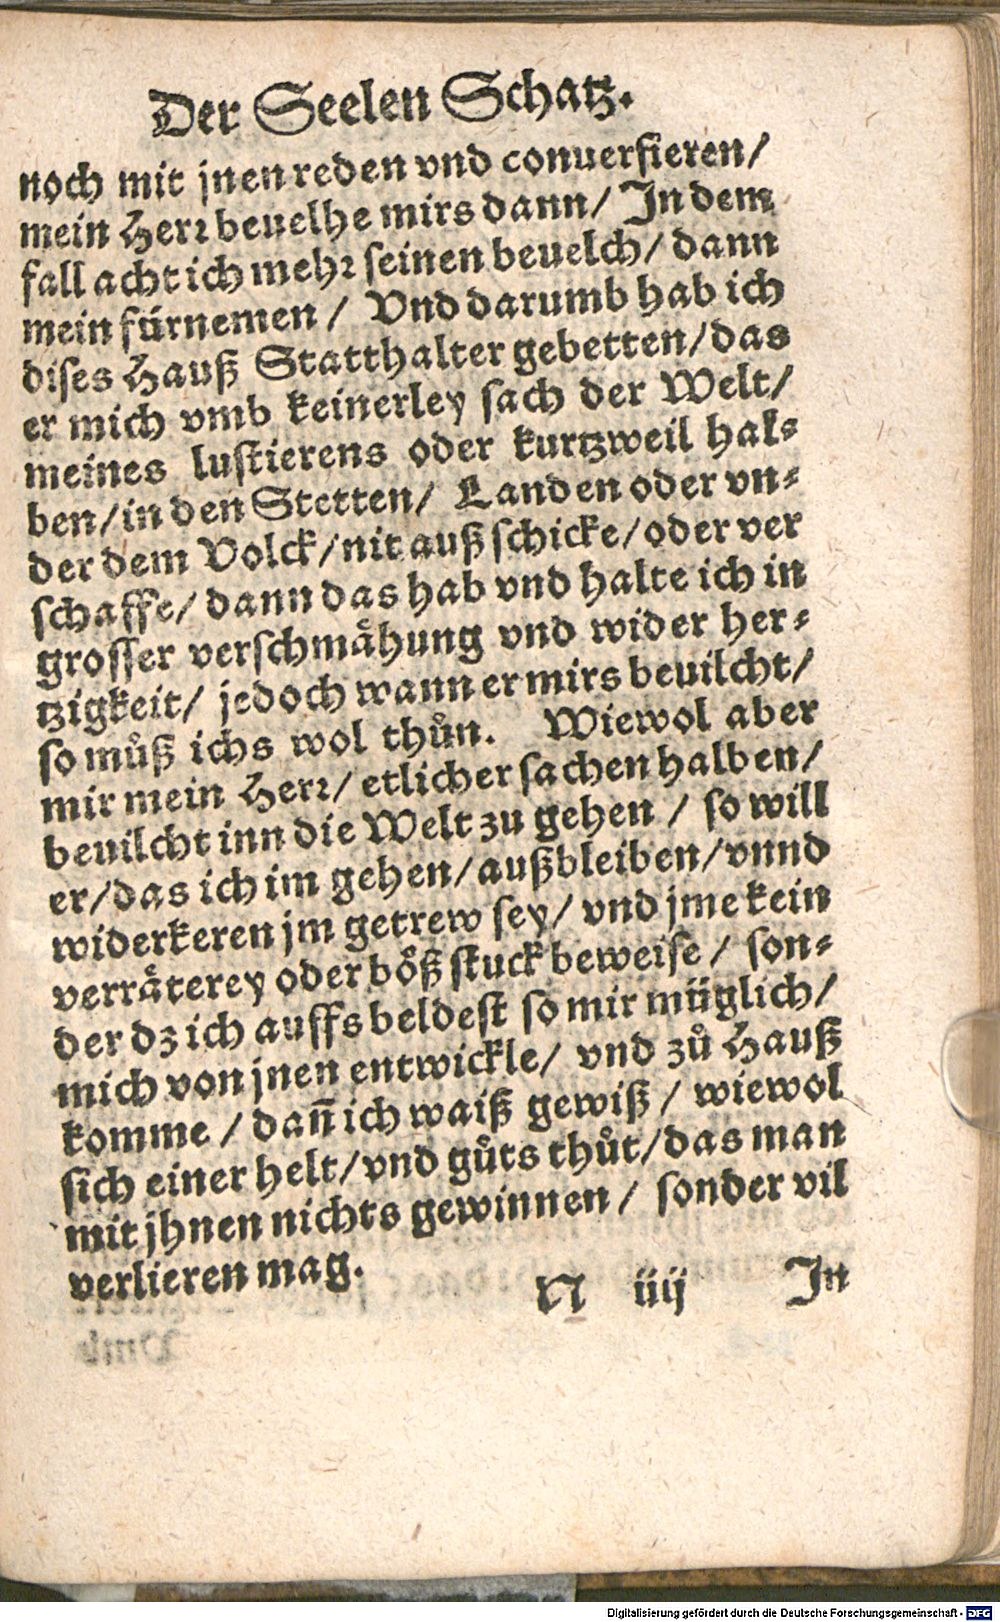 Der Seelen Schatz.
noch mit jnen reden vnd conuersieren/
mein Herr beuelhe mirs dann/ In dem
fall acht ich mehr seinen beuelch/ dann
mein fürnemen/ Vnd darumb hab ich
dises Hauß Statthalter gebetten/das
er mich vmb keinerley sach der Welt/
meines lustierens oder kurtzweil hal-
ben/in den Stetten/ Landen oder vn-
der dem Volck/nit außschicke/oder ver
schaffe/ dann das hab vnd halte ich in
grosser verschmåhung vnd wider her-
tzigkeit/ jedoch wann er mirs beuilcht/
so můß ichs wol thůn. Wiewol aber
mir mein Herr/ etlicher sachen halben/
beuilcht inn die Welt zu gehen / so will
er/das ich im gehen/außbleiben/vnnd
widerkeren jm getrew sey/ vnd jme kein
verråterey oder bôß stuck beweise / son-
der dz ich auffs beldest so mir müglich/
mich von jnen entwickle/ vnd zů Hauß
komme / dañ ich waiß gewiß / wiewol
sich einer helt/vnd gůts thůt/das man
mit jhnen nichts gewinnen / sonder vil
verlieren mag.
N iiij In
Digitalisierung gefördert durch die Deutsche Forschungsgemeinschaft - DFG